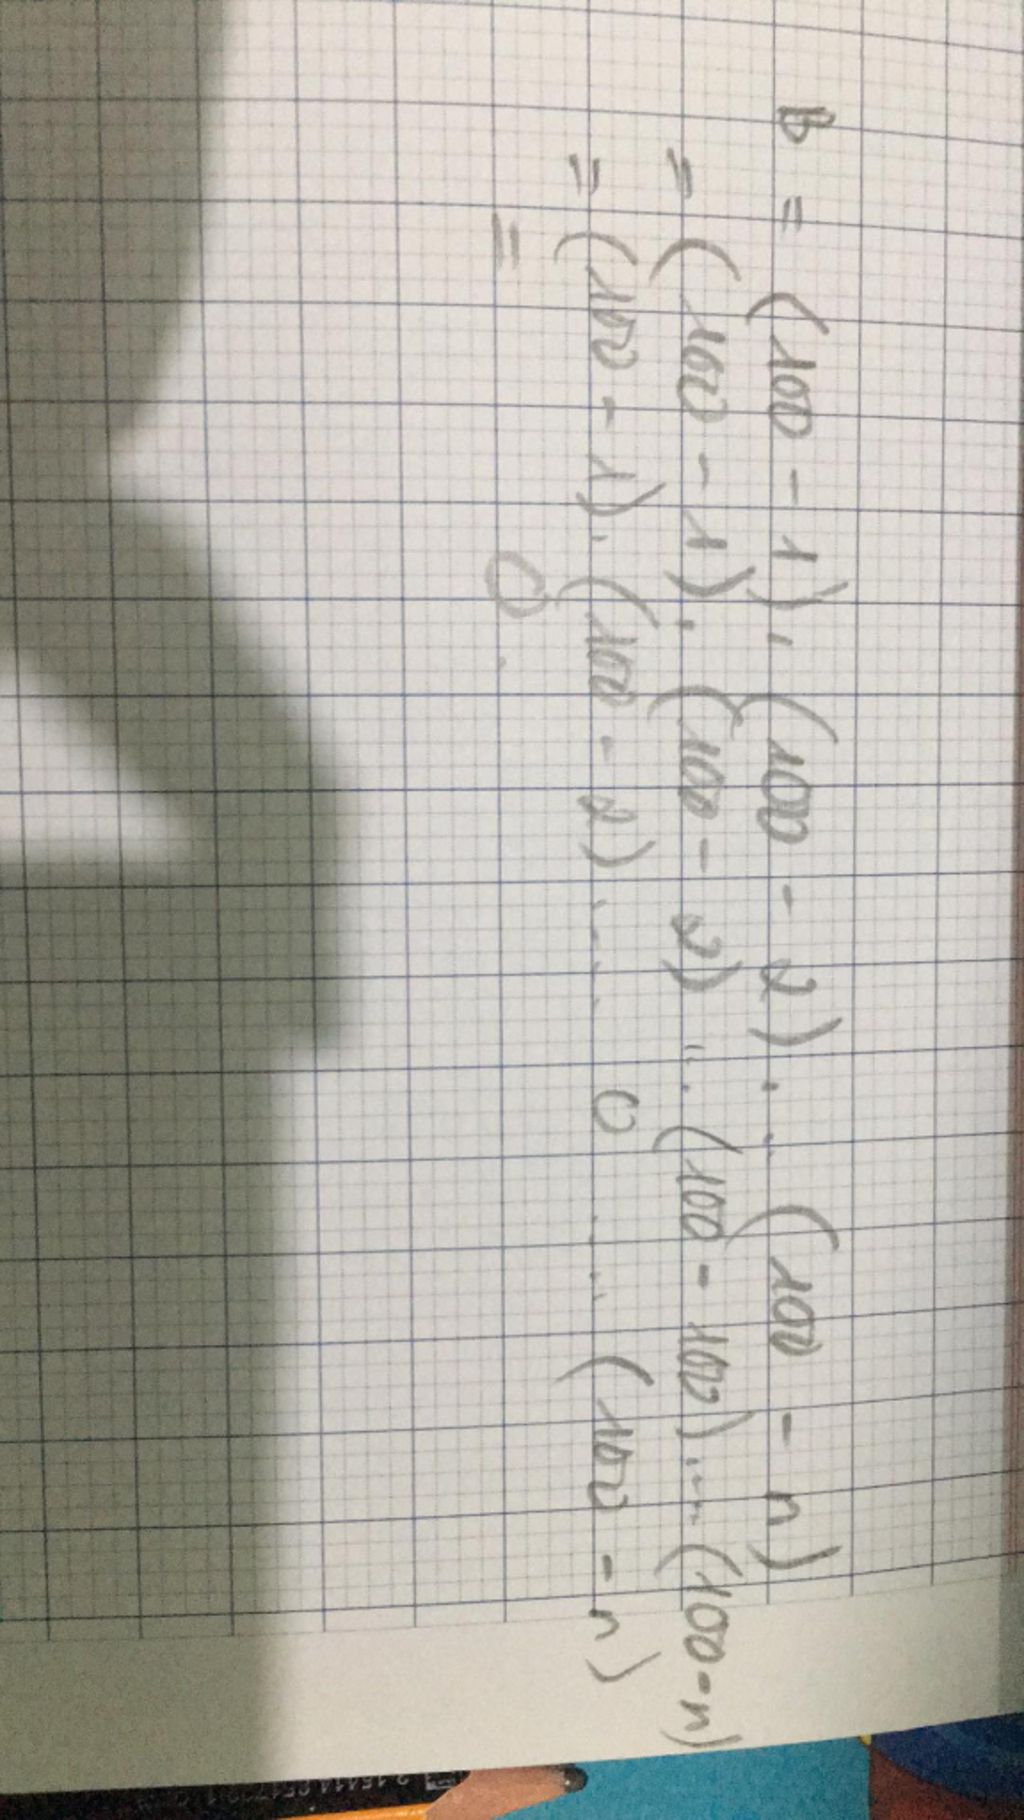 B = (100 - 1). (100 - 2) . .. (100 - n)
= (100 - 1). (100 - 2) ... (100 - 100) .... (100 - n)
= (100 - 1). (100 - 2) ..... 0 .... (100 - n)
= 0.